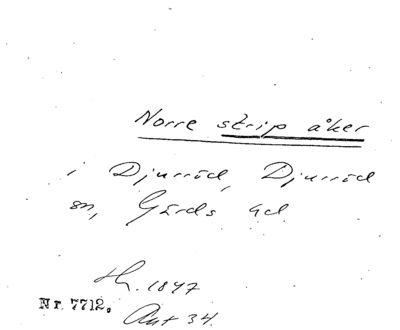 Norre strip åker
i Djurröd, Djurröd
sn, Gärds hd
H. 1847
Nr. 7712.
Akt 34.